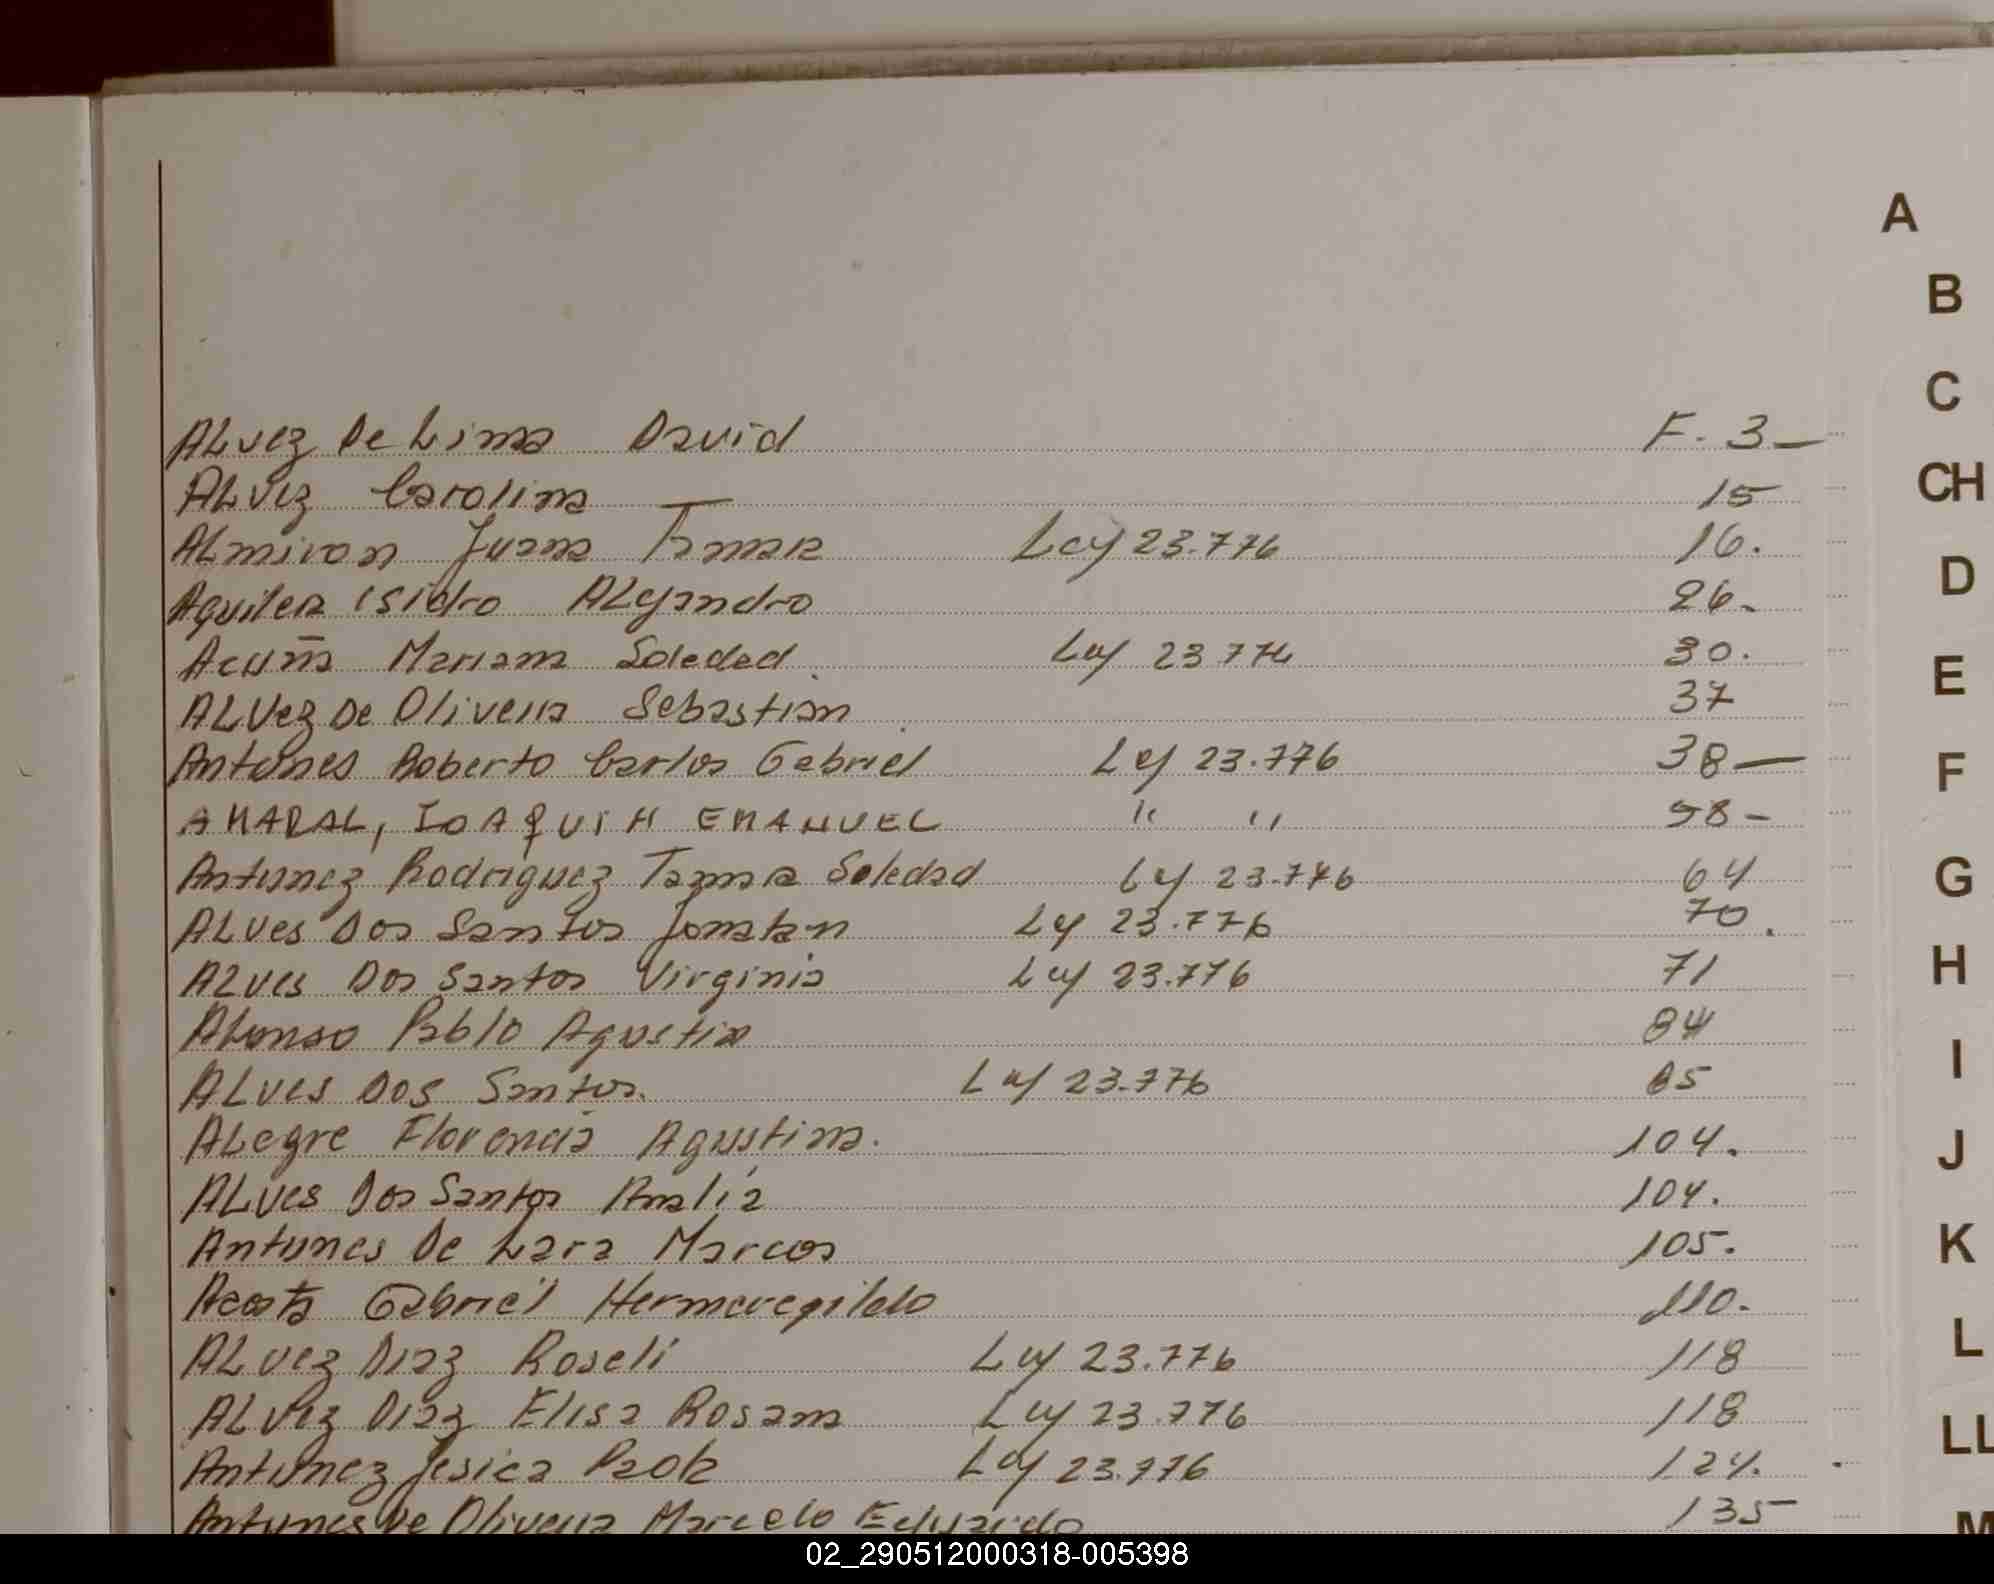 A
B
C
CH
D
E
F
G
H
I
J
K
L
LL
M
ALvez De Lima David F. 3_
ALvez Carolina 15
ALmiron Juana Tamara Ley 23.776 16.
Aguilera Isidro ALejandro 26.
Acuña Mariana Soledad Ley 23 776 30.
ALvez De Oliveira Sebastian 37
Antunes Roberto Carlos Gabriel Ley 23.776 38_
AMARAL, JOAQUIM EMANUEL " " 58-
Antunez Rodriguez Tamara Soledad Ley 23.776 64
ALves Dos Santos Jonatan Ley 23.776 70.
ALves Dos Santos Virginia Ley 23.776 71
ALonso Pablo Agustin 84
ALves Dos Santos. Ley 23.776 85
ALegre Florencia Agustina. 104.
ALves Dos Santos Analia 104.
Antunes De Lara Marcos 105.
Acosta Gabriel Hermeregildo 110.
ALvez Diaz Roseli Ley 23.776 118
ALvez Diaz Elisa Rosana Ley 23.776 118
Antunez Jesica Paola Ley 23.776 124.
Antunes De Oliveira Marcelo Eduardo 135
02_290512000318-005398